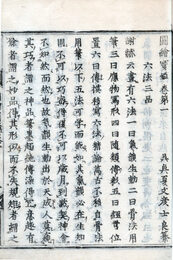 圖繪寶鑑卷第一
吳興夏文彥士良纂
六法三品
謝赫云畫有六法一曰氣韻生動二曰骨法用
筆三曰應物寫形四曰隨類傅彩五曰經營位
置六曰傳模移寫六法精論萬古不移自骨法
用筆以下五法可學而能如其氣韻必在生知
固不可以巧密得復不可以歲月到默契神會
不知然而然也故氣韻生動出於天成人莫窺
其巧者謂之神品筆墨超絕傳染得宜意趣有
餘者謂之妙品得其形似而不失規矩者謂之